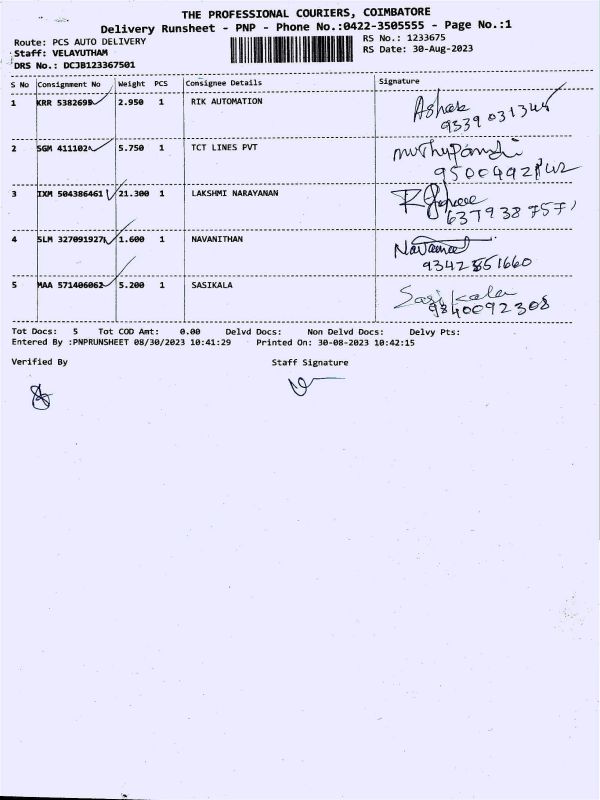 THE PROFESSIONAL COURIERS, COIMBATORE
Delivery Runsheet - PNP - Phone No.:0422-3505555 - Page No.:1
Route: PCS AUTO DELIVERY RS No.: 1233675
Staff: VELAYUTHAM RS Date: 30-Aug-2023
DRS No.: DCJB123367501
S No Consignment No Weight PCS Consignee Details Signature
1 KRR 5382695 2.950 1 RIK AUTOMATION Ashok
9339031345
2 SGM 411102 5.750 1 TCT LINES PVT
3 IXM 504386461 21.300 1 LAKSHMI NARAYANAN
637938 7571
4 SLM 327091927 1.600 1 NAVANITHAN
9342851660
5 MAA 571406062 5.200 1 SASIKALA Sasikala
9840092308
Tot Docs: 5 Tot COD Amt: 0.00 Delvd Docs: Non Delvd Docs: Delvy Pts:
Entered By :PNPRUNSHEET 08/30/2023 10:41:29 Printed On: 30-08-2023 10:42:15
Verified By Staff Signature